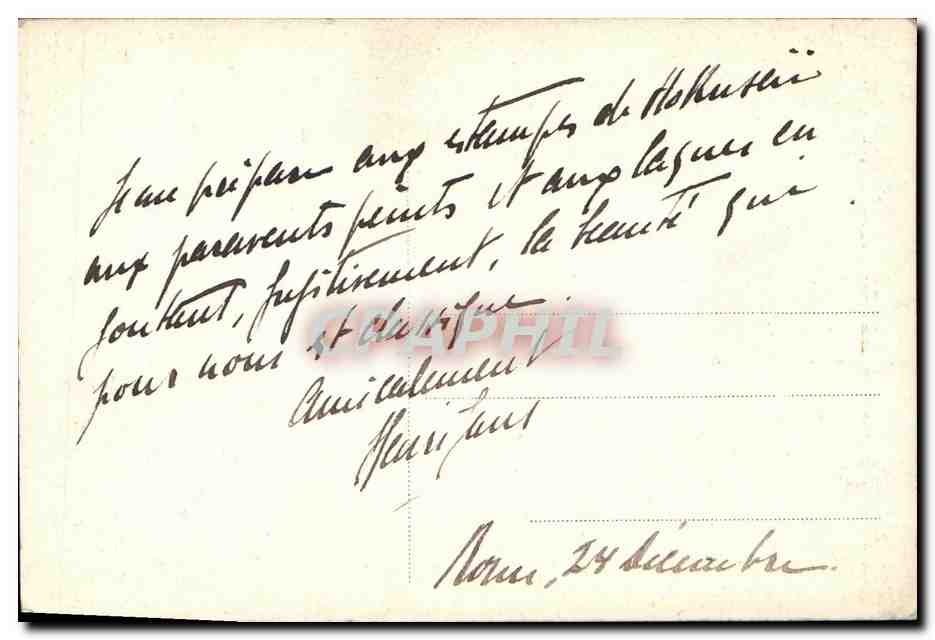 Je me prépare aux estampes de Hokuseïi
aux paravents peints et aux laques en
goutant, fugitivement, la beauté qui
pour nous est classique.
Amicalement
Henri
Rome, 24 Décembre.
CPAPHIL